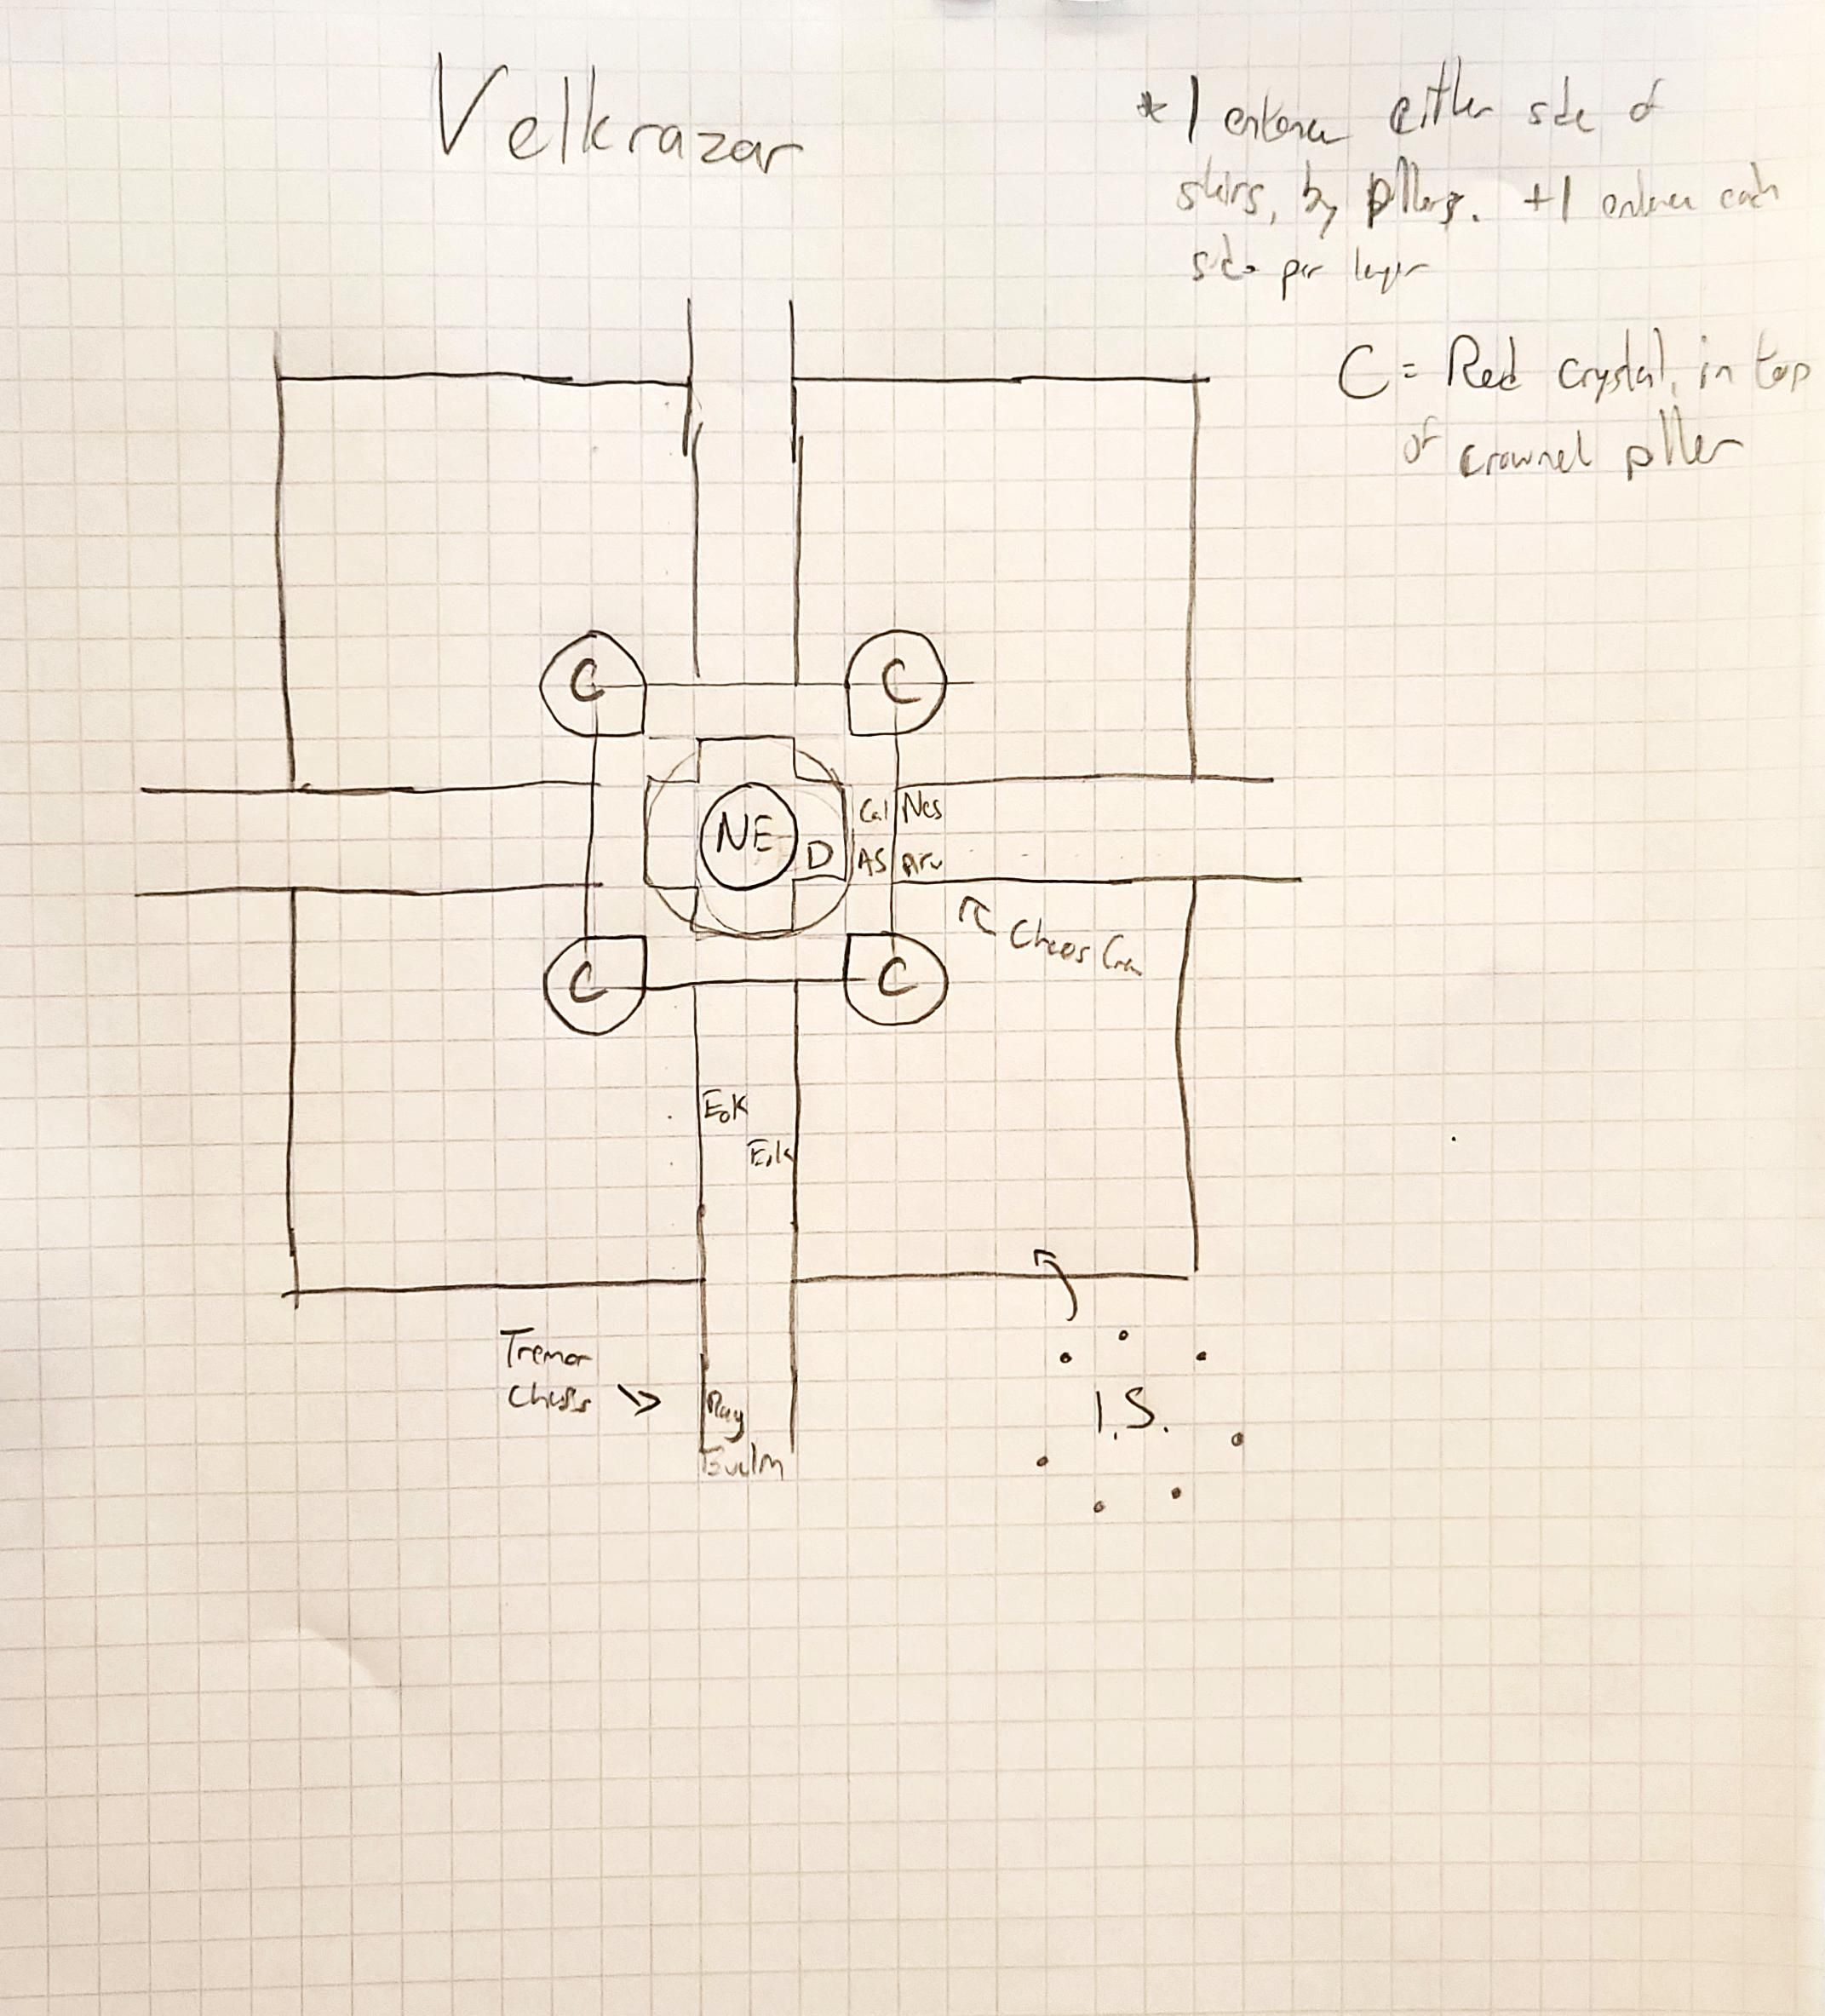 Velkrazar
* 1 entence either side of
stairs, by pillers. +1 entence each
side per layer
C = Red crystal, in top
of crownel piller
C C
Cal Ncs
NE D AS Arv
Chaos
C C
EoK
EoK
Tremor
I.S.
Ray